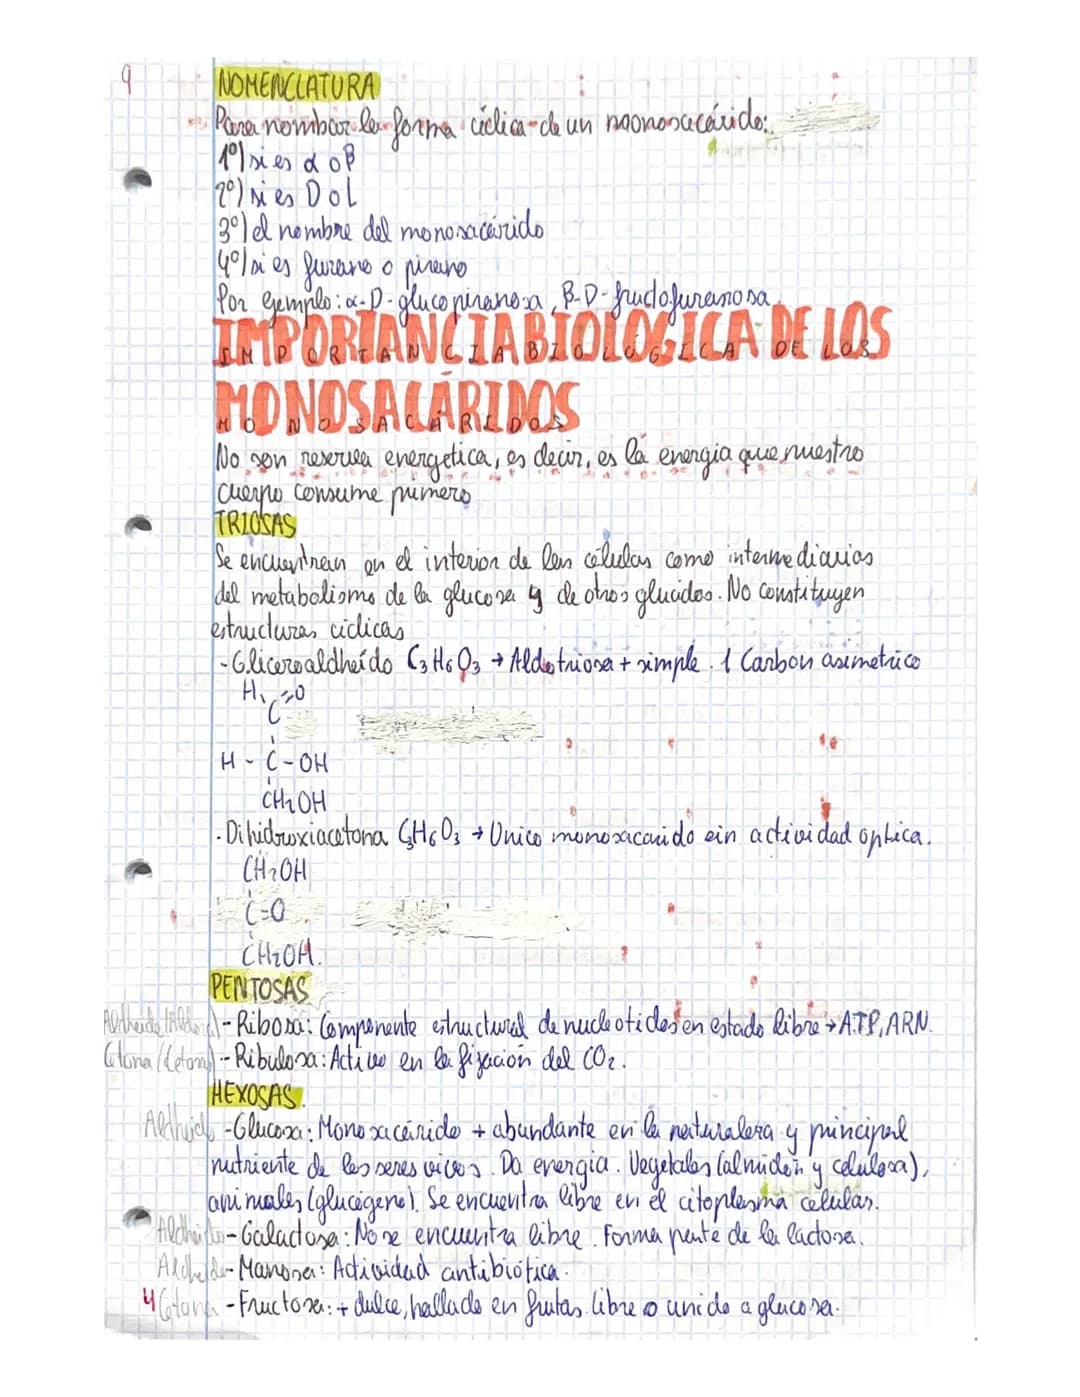 9
NOMENCLATURA
Para nombrar la forma cíclica de un monosacárido:
1º) si es α o β
2º) si es D o L
3º) el nombre del monosacárido
4º) si es furano o pirano
Por ejemplo: α-D-glucopiranosa, β-D-fructofuranosa.
IMPORTANCIA BIOLÓGICA DE LOS
MONOSACÁRIDOS
No son reserva energética, es decir, es la energia que nuestro
cuerpo consume primero
TRIOSAS
Se encuentran en el interior de las células como intermediarios
del metabolismo de la glucosa y de otros glucidos. No constituyen
estructuras ciclicas
-Gliceroaldheído C3H6O3 → Aldotriosa + simple. 1 Carbon asimetrico
H =O
C
H - C - OH
CH2OH
-Dihidroxiacetona C3H6O3 → Unico monosacarido sin actividad optica.
CH2OH
C=O
CH2OH.
PENTOSAS
-Ribosa: Componente estructural de nucleotidos en estado libre → ATP, ARN.
Cetona (Cetona) -Ribulosa: Activo en la fijación del CO2.
HEXOSAS.
-Glucosa: Monosacárido + abundante en la naturaleza y principal
nutriente de los seres vivos. Da energia. Vegetales (almidón y celulosa),
animales (glucógeno). Se encuentra libre en el citoplasma celular.
-Galactosa: No se encuentra libre. Forma parte de la lactosa.
-Manosa: Actividad antibiótica.
4 Cetona -Fructosa: + dulce, hallado en frutas libre o unido a glucosa.